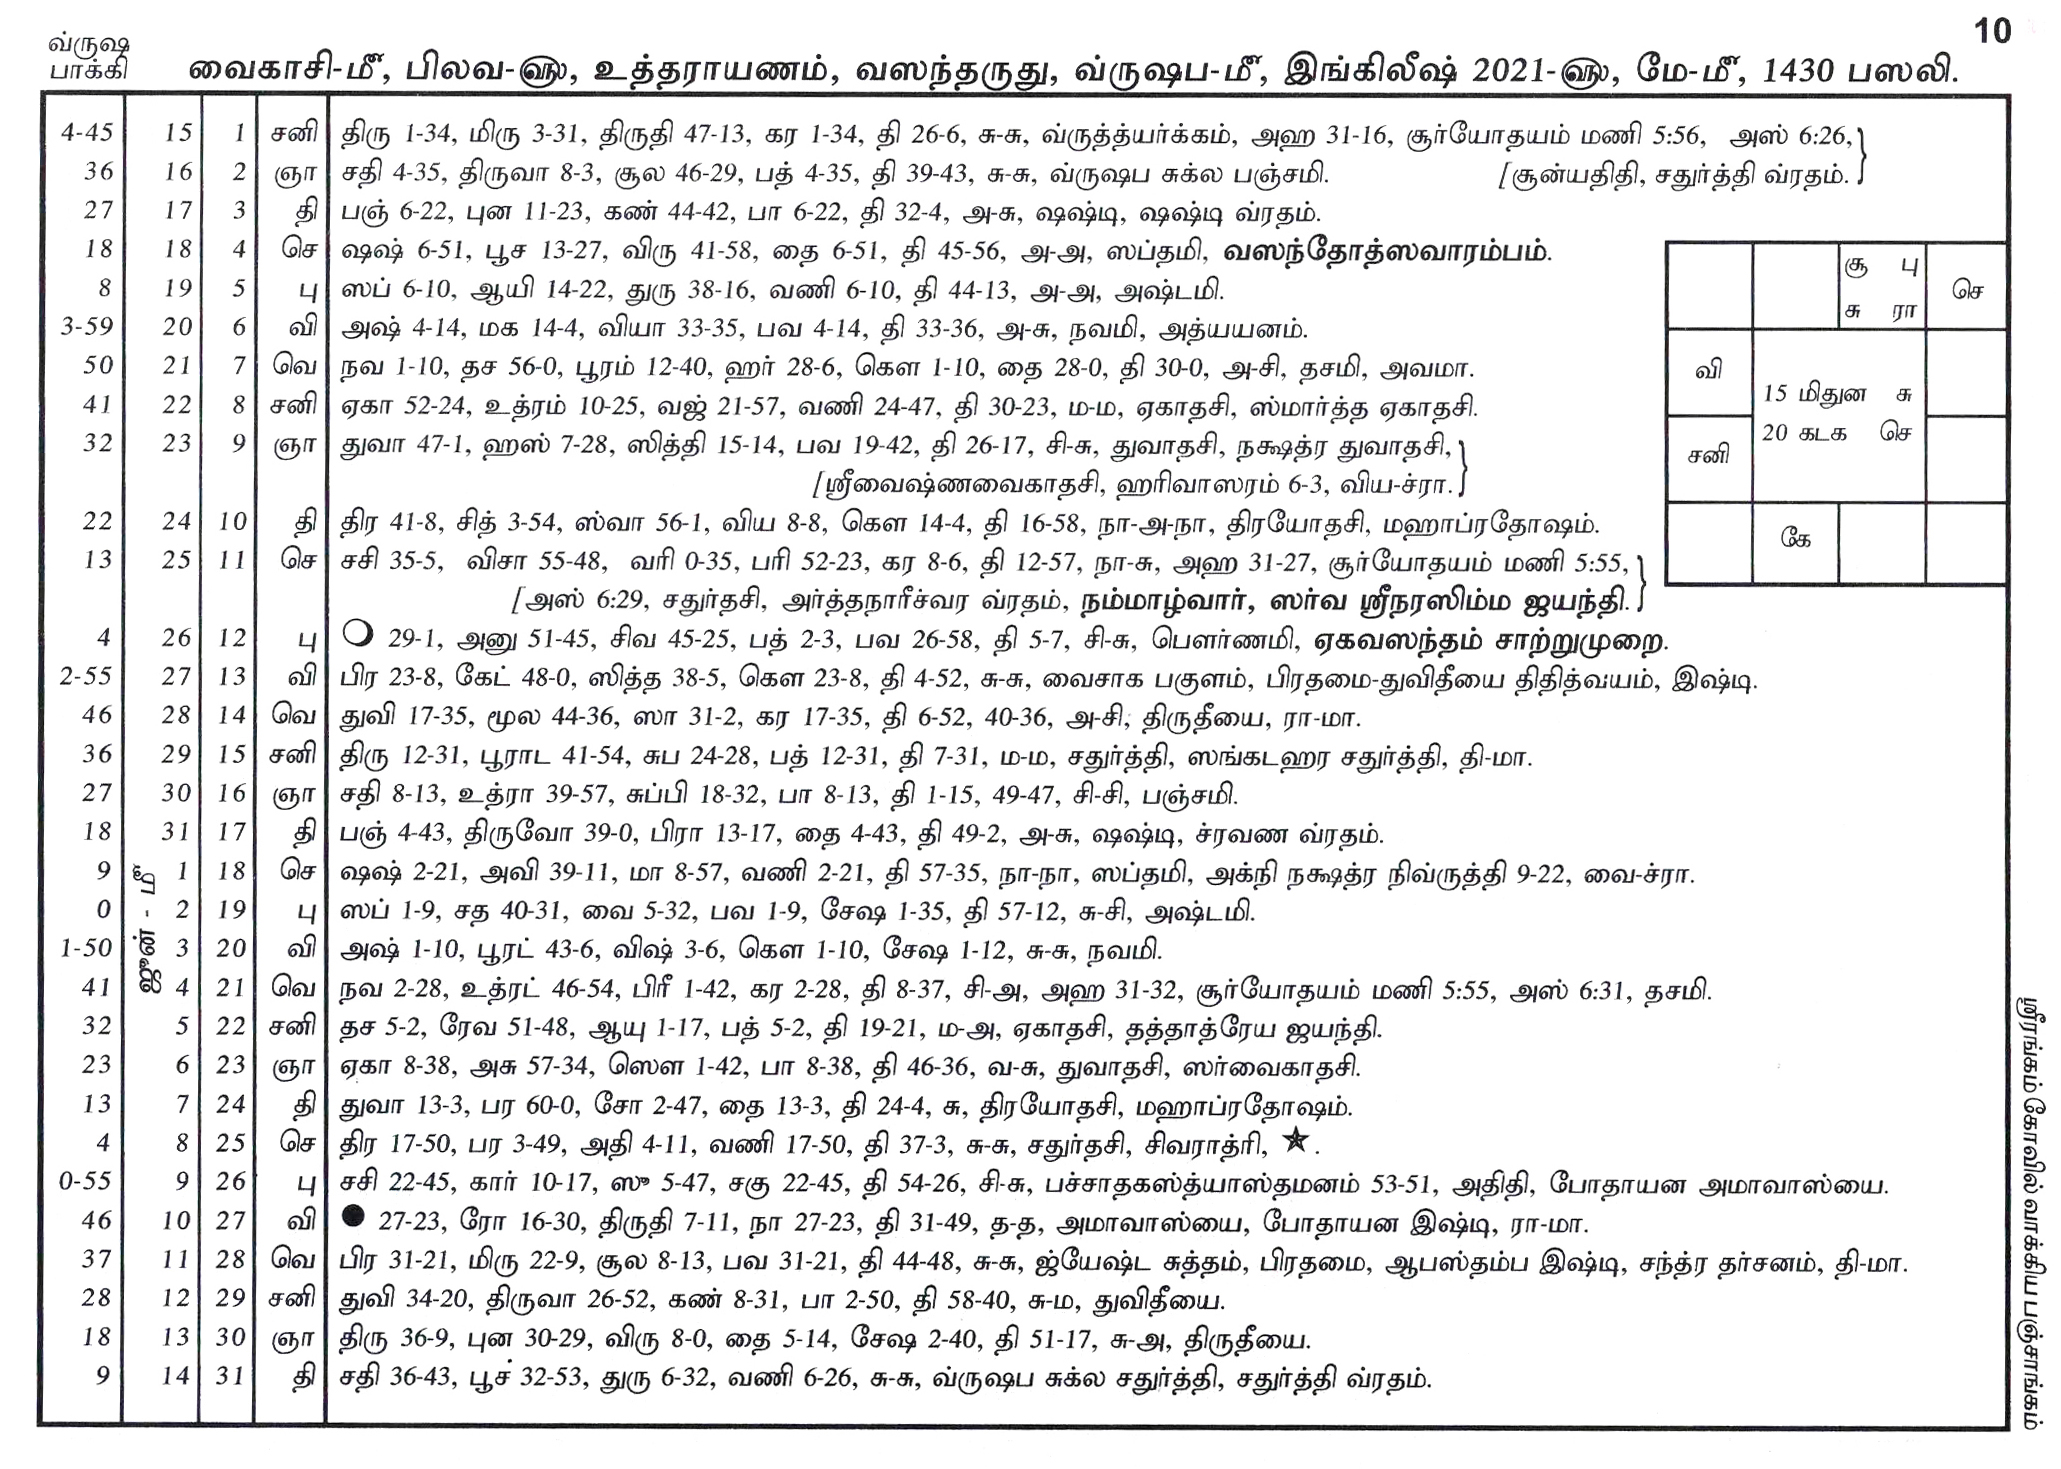 10
வ்ருஷ
பாக்கி
வைகாசி-மீ, பிலவ-௵, உத்தராயணம், வஸந்தருது, வ்ருஷப-மீ, இங்கிலீஷ் 2021-௵, மே-மீ, 1430 பஸலி.
4-45 15 1 சனி திரு 1-34, மிரு 3-31, திருதி 47-13, கர 1-34, தி 26-6, சு-சு, வ்ருத்த்யர்க்கம், அஹ 31-16, சூர்யோதயம் மணி 5:56, அஸ் 6:26,}
36 16 2 ஞா சதி 4-35, திருவா 8-3, சூல 46-29, பத் 4-35, தி 39-43, சு-சு, வ்ருஷப சுக்ல பஞ்சமி. [சூன்யதிதி, சதுர்த்தி வ்ரதம்.
27 17 3 தி பஞ் 6-22, புன 11-23, கண் 44-42, பா 6-22, தி 32-4, அ-சு, ஷஷ்டி, ஷஷ்டி வ்ரதம்.
18 18 4 செ ஷஷ் 6-51, பூச 13-27, விரு 41-58, தை 6-51, தி 45-56, அ-அ, ஸப்தமி, வஸந்தோத்ஸவாரம்பம்.
8 19 5 பு ஸப் 6-10, ஆயி 14-22, துரு 38-16, வணி 6-10, தி 44-13, அ-அ, அஷ்டமி.
3-59 20 6 வி அஷ் 4-14, மக 14-4, வியா 33-35, பவ 4-14, தி 33-36, அ-சு, நவமி, அத்யயனம்.
50 21 7 வெ நவ 1-10, தச 56-0, பூரம் 12-40, ஹர் 28-6, கௌ 1-10, தை 28-0, தி 30-0, அ-சி, தசமி, அவமா.
41 22 8 சனி ஏகா 52-24, உத்ரம் 10-25, வஜ் 21-57, வணி 24-47, தி 30-23, ம-ம, ஏகாதசி, ஸ்மார்த்த ஏகாதசி.
32 23 9 ஞா துவா 47-1, ஹஸ் 7-28, ஸித்தி 15-14, பவ 19-42, தி 26-17, சி-சு, துவாதசி, நக்ஷத்ர துவாதசி,}
[ஸ்ரீவைஷ்ணவைகாதசி, ஹரிவாஸரம் 6-3, விய-ச்ரா.
22 24 10 தி திர 41-8, சித் 3-54, ஸ்வா 56-1, விய 8-8, கௌ 14-4, தி 16-58, நா-அ-நா, திரயோதசி, மஹாப்ரதோஷம்.
13 25 11 செ சசி 35-5, விசா 55-48, வரி 0-35, பரி 52-23, கர 8-6, தி 12-57, நா-சு, அஹ 31-27, சூர்யோதயம் மணி 5:55,}
[அஸ் 6:29, சதுர்தசி, அர்த்தநாரீச்வர வ்ரதம், நம்மாழ்வார், ஸர்வ ஸ்ரீநரஸிம்ம ஜயந்தி.
4 26 12 பு 29-1, அனு 51-45, சிவ 45-25, பத் 2-3, பவ 26-58, தி 5-7, சி-சு, பௌர்ணமி, ஏகவஸந்தம் சாற்றுமுறை.
2-55 27 13 வி பிர 23-8, கேட் 48-0, ஸித்த 38-5, கௌ 23-8, தி 4-52, சு-சு, வைசாக பகுளம், பிரதமை-துவிதீயை திதித்வயம், இஷ்டி.
46 28 14 வெ துவி 17-35, மூல 44-36, ஸா 31-2, கர 17-35, தி 6-52, 40-36, அ-சி, திருதீயை, ரா-மா.
36 29 15 சனி திரு 12-31, பூராட 41-54, சுப 24-28, பத் 12-31, தி 7-31, ம-ம, சதுர்த்தி, ஸங்கடஹர சதுர்த்தி, தி-மா.
27 30 16 ஞா சதி 8-13, உத்ரா 39-57, சுப்பி 18-32, பா 8-13, தி 1-15, 49-47, சி-சி, பஞ்சமி.
18 31 17 தி பஞ் 4-43, திருவோ 39-0, பிரா 13-17, தை 4-43, தி 49-2, அ-சு, ஷஷ்டி, ச்ரவண வ்ரதம்.
9 1 18 செ ஷஷ் 2-21, அவி 39-11, மா 8-57, வணி 2-21, தி 57-35, நா-நா, ஸப்தமி, அக்நி நக்ஷத்ர நிவ்ருத்தி 9-22, வை-ச்ரா.
0 2 19 பு ஸப் 1-9, சத 40-31, வை 5-32, பவ 1-9, சேஷ 1-35, தி 57-12, சு-சி, அஷ்டமி.
1-50 3 20 வி அஷ் 1-10, பூரட் 43-6, விஷ் 3-6, கௌ 1-10, சேஷ 1-12, சு-சு, நவமி.
41 4 21 வெ நவ 2-28, உத்ரட் 46-54, பிரீ 1-42, கர 2-28, தி 8-37, சி-அ, அஹ 31-32, சூர்யோதயம் மணி 5:55, அஸ் 6:31, தசமி.
32 5 22 சனி தச 5-2, ரேவ 51-48, ஆயு 1-17, பத் 5-2, தி 19-21, ம-அ, ஏகாதசி, தத்தாத்ரேய ஜயந்தி.
23 6 23 ஞா ஏகா 8-38, அசு 57-34, ஸௌ 1-42, பா 8-38, தி 46-36, வ-சு, துவாதசி, ஸர்வைகாதசி.
13 7 24 தி துவா 13-3, பர 60-0, சோ 2-47, தை 13-3, தி 24-4, சு, திரயோதசி, மஹாப்ரதோஷம்.
4 8 25 செ திர 17-50, பர 3-49, அதி 4-11, வணி 17-50, தி 37-3, சு-சு, சதுர்தசி, சிவராத்ரி, ★.
0-55 9 26 பு சசி 22-45, கார் 10-17, ஸு 5-47, சகு 22-45, தி 54-26, சி-சு, பச்சாதகஸ்த்யாஸ்தமனம் 53-51, அதிதி, போதாயன அமாவாஸ்யை.
46 10 27 வி ● 27-23, ரோ 16-30, திருதி 7-11, நா 27-23, தி 31-49, த-த, அமாவாஸ்யை, போதாயன இஷ்டி, ரா-மா.
37 11 28 வெ பிர 31-21, மிரு 22-9, சூல 8-13, பவ 31-21, தி 44-48, சு-சு, ஜ்யேஷ்ட சுத்தம், பிரதமை, ஆபஸ்தம்ப இஷ்டி, சந்த்ர தர்சனம், தி-மா.
28 12 29 சனி துவி 34-20, திருவா 26-52, கண் 8-31, பா 2-50, தி 58-40, சு-ம, துவிதீயை.
18 13 30 ஞா திரு 36-9, புன 30-29, விரு 8-0, தை 5-14, சேஷ 2-40, தி 51-17, சு-அ, திருதீயை.
9 14 31 தி சதி 36-43, பூச 32-53, துரு 6-32, வணி 6-26, சு-சு, வ்ருஷப சுக்ல சதுர்த்தி, சதுர்த்தி வ்ரதம்.
ஜூன் - மீ
சூ பு
சு ரா
செ
வி
15 மிதுன சு
20 கடக செ
சனி
கே
ஸ்ரீரங்கம் கோவில் வாக்கிய பஞ்சாங்கம்